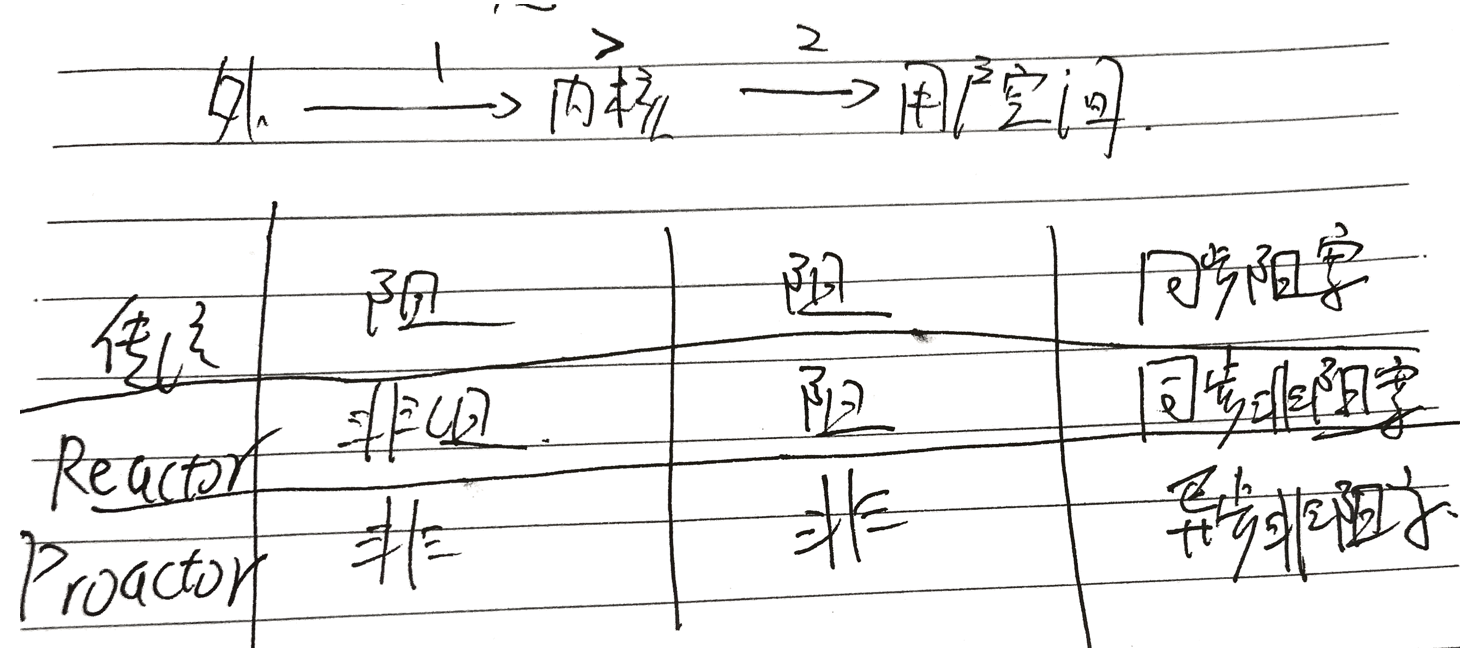 1 > 2
外 → 内核 → 用户空间.
传统 阻 阻 同步阻塞
Reactor 非阻 阻 同步非阻塞
Proactor 非 非 异步非阻塞